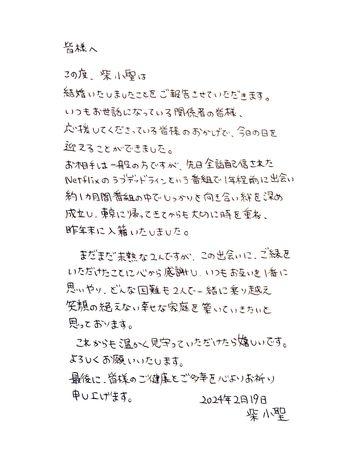 皆様へ
この度、柴小聖は
結婚いたしましたことをご報告させていただきます。
いつもお世話になっている関係者の皆様、
応援してくださっている皆様のおかげで、今日の日を
迎えることができました。
お相手は一般の方ですが、先日全話配信された
Netflixのラブデッドラインという番組で1年程前に出会い
約1カ月間番組の中でしっかりと向き合い絆を深め
成立し、東京に帰ってきてからも大切に時を重ね、
昨年末に入籍いたしました。
まだまだ未熟な2人ですが、この出会いに、ご縁を
いただけたことに心から感謝し、いつもお互いを1番に
思いやり、どんな困難も2人で一緒に乗り越え
笑顔の絶えない幸せな家庭を築いていきたいと
思っております。
これからも温かく見守っていただけたら嬉しいです。
よろしくお願いいたします。
最後に、皆様のご健康とご多幸を心よりお祈り
申し上げます。
2024年2月19日
柴 小聖